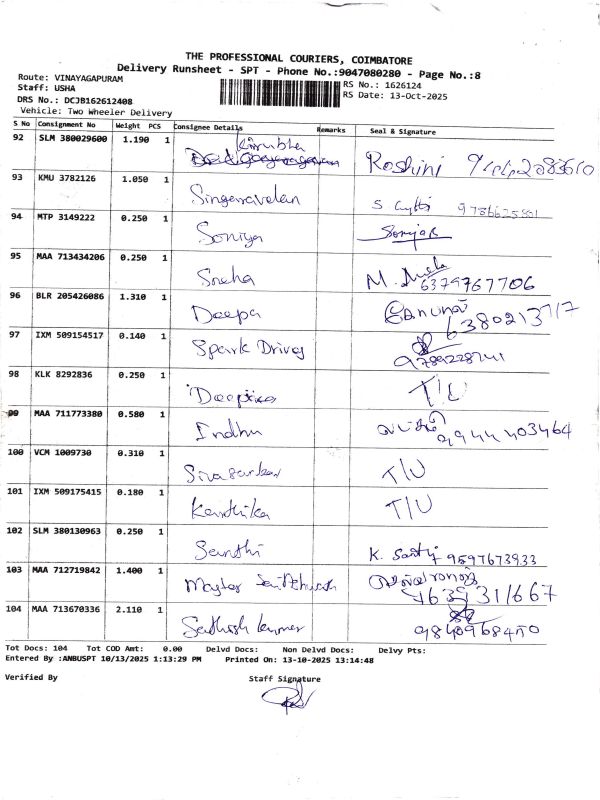 THE PROFESSIONAL COURIERS, COIMBATORE
Delivery Runsheet - SPT - Phone No.:9047080280 - Page No.:8
Route: VINAYAGAPURAM
Staff: USHA
RS No.: 1626124
DRS No.: DCJB162612408
RS Date: 13-Oct-2025
Vehicle: Two Wheeler Delivery
S No Consignment No Weight PCS Consignee Details Remarks Seal & Signature
92 SLM 380029600 1.190 1 Kirubha Roshini
93 KMU 3782126 1.050 1 Singaravelan
94 MTP 3149222 0.250 1 Soniya
95 MAA 713434206 0.250 1 Sneha M. 6379767706
96 BLR 205426086 1.310 1 Deepa
97 IXM 509154517 0.140 1 Spark Drives
98 KLK 8292836 0.250 1 Deepika T/U
99 MAA 711773380 0.580 1 Indhu
100 VCM 1009730 0.310 1 Sivasankar T/U
101 IXM 509175415 0.180 1 Karthika T/U
102 SLM 380130963 0.250 1 Santhi K. 9597673933
103 MAA 712719842 1.400 1 Master
104 MAA 713670336 2.110 1 Sathish kumar
Tot Docs: 104 Tot COD Amt: 0.00 Delvd Docs: Non Delvd Docs: Delvy Pts:
Entered By :ANBUSPT 10/13/2025 1:13:29 PM Printed On: 13-10-2025 13:14:48
Verified By Staff Signature